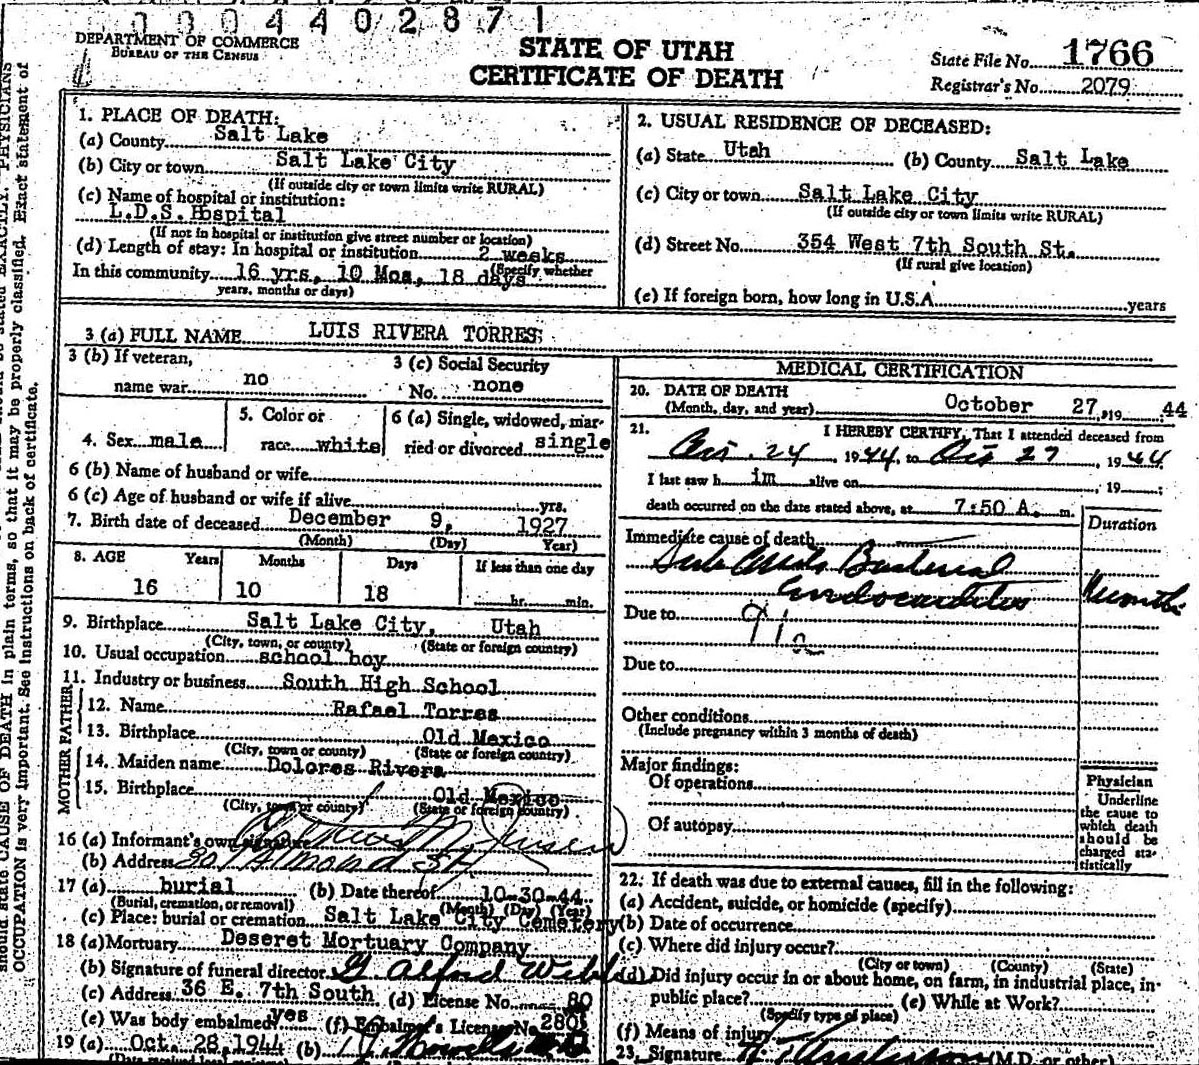 0304402871
DEPARTMENT OF COMMERCE
BUREAU OF THE CENSUS
STATE OF UTAH
CERTIFICATE OF DEATH
State File No. 1766
Registrar's No. 2079
1. PLACE OF DEATH:
(a) County Salt Lake
(b) City or town Salt Lake City
(If outside city or town limits write RURAL)
(c) Name of hospital or institution:
L.D.S. Hospital
(If not in hospital or institution give street number or location)
(d) Length of stay: In hospital or institution 2 weeks
(Specify whether
In this community 16 yrs, 10 Mos, 18 days
years, months or days)
2. USUAL RESIDENCE OF DECEASED:
(a) State Utah (b) County Salt Lake
(c) City or town Salt Lake City
(If outside city or town limits write RURAL)
(d) Street No. 354 West 7th South St.
(If rural give location)
(e) If foreign born, how long in U.S.A. years
3 (a) FULL NAME LUIS RIVERA TORRES
3 (b) If veteran,
name war no
3 (c) Social Security
No. none
4. Sex male
5. Color or
race white
6 (a) Single, widowed, mar-
ried or divorced single
6 (b) Name of husband or wife
6 (c) Age of husband or wife if alive yrs.
7. Birth date of deceased December 9, 1927
(Month) (Day) Year)
8. AGE Years Months Days If less than one day
16 10 18 hr. min.
9. Birthplace Salt Lake City, Utah
(City, town, or county) (State or foreign country)
10. Usual occupation school boy
11. Industry or business South High School
FATHER
12. Name Rafael Torres
13. Birthplace Old Mexico
(City, town or county) (State or foreign country)
MOTHER
14. Maiden name Dolores Rivera
15. Birthplace Old Mexico
(City, town or county) (State or foreign country)
16 (a) Informant's own signature
(b) Address Almond St
17 (a) burial (b) Date thereof 10-30-44
(Burial, cremation, or removal) (Month) (Day) (Year)
(c) Place: burial or cremation Salt Lake City Cemetery
18 (a) Mortuary Deseret Mortuary Company
(b) Signature of funeral director
(c) Address 36 E. 7th South (d) License No. 80
(e) Was body embalmed? yes (f) Embalmer's License No.
19 (a) Oct. 28, 1944 (b)
MEDICAL CERTIFICATION
20. DATE OF DEATH
(Month, day, and year) October 27, 19 44
21. I HEREBY CERTIFY, That I attended deceased from
Oct. 24, 1944, to Oct 27, 1944
I last saw h im alive on , 19 ;
death occurred on the date stated above, at 7:50 A. m.
Duration
Immediate cause of death
Sub Acute Bacterial
Endocarditis
Due to
Due to
Other conditions
(Include pregnancy within 3 months of death)
Major findings:
Of operations
Of autopsy
Physician
Underline
the cause to
which death
should be
charged sta-
tistically
22. If death was due to external causes, fill in the following:
(a) Accident, suicide, or homicide (specify)
(b) Date of occurrence
(c) Where did injury occur?
(City or town) (County) (State)
(d) Did injury occur in or about home, on farm, in industrial place, in
public place? (e) While at Work?
(Specify type of place)
(f) Means of injury
23. Signature (M.D. or other)
EXACTLY. PHYSICIANS
should state CAUSE OF DEATH in plain terms, so that it may be properly classified. Exact statement of
OCCUPATION is very important. See instructions on back of certificate.